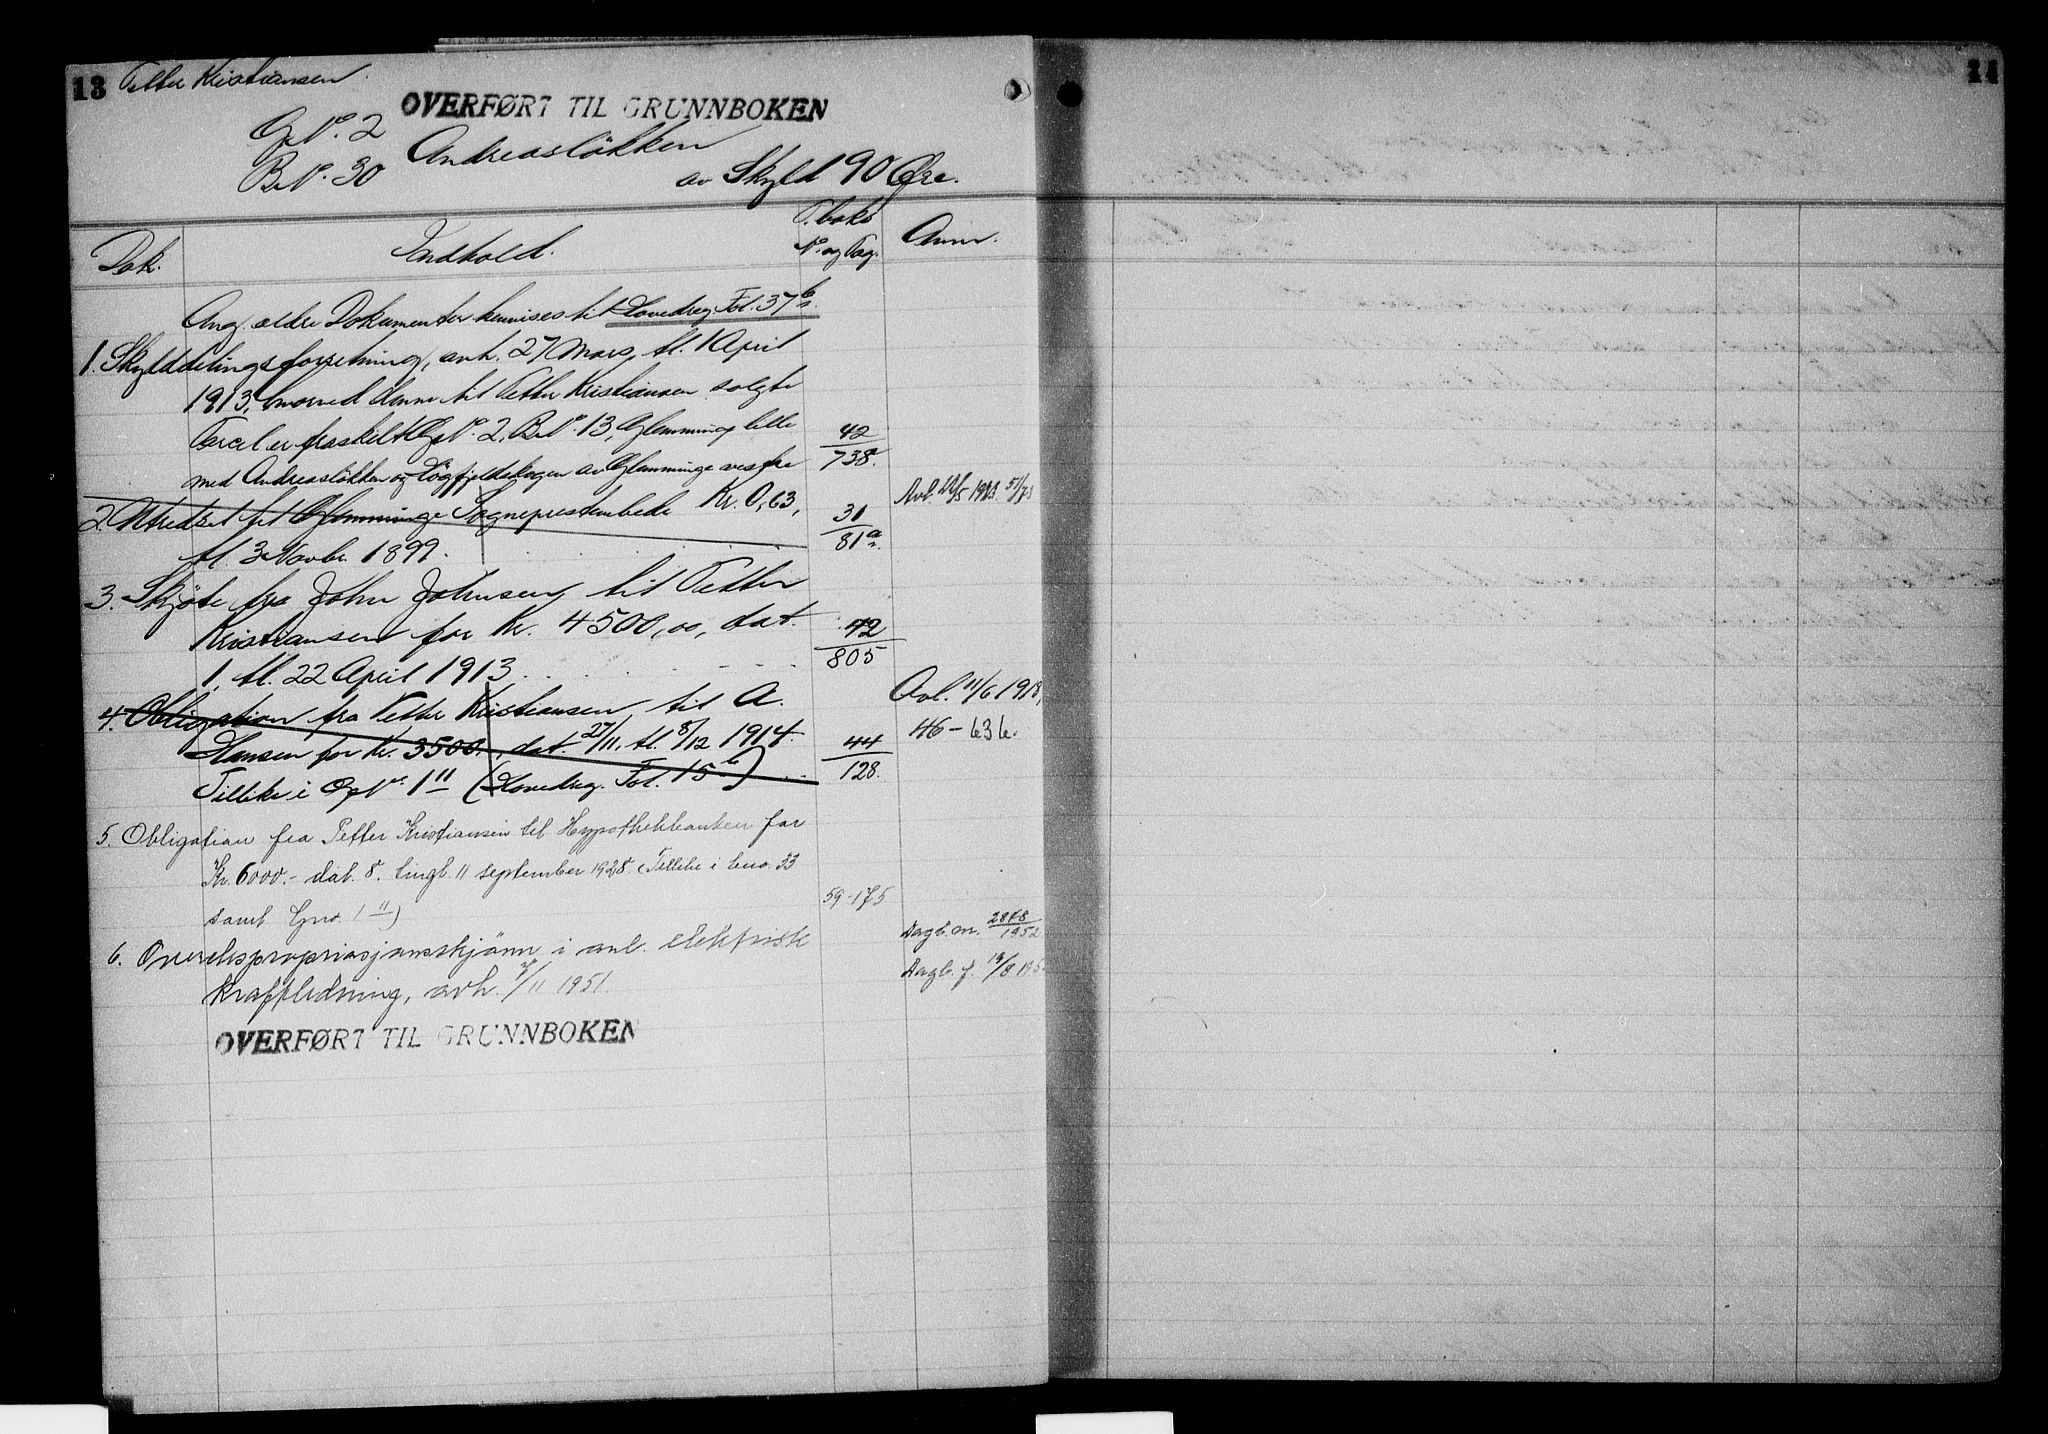 13 Petter Kristiansen 14
OVERFØRT TIL GRUNNBOKEN
GNo. 2 Andreasløkken
BNo. 30 av Skyld 190 Øre.
Dok. Indhold. T. boks No og Pag. Anm.
Ang. ældre Dokumenter henvises til Hovedreg. Fol. 37 b.
1. Skylddelingsforretning, avh. 27 Mars, tl. 1 April
1913, hvorved denne til Petter Kristiansen solgte
Parcel er fraskilt GNo. 2, BNo. 13, Glemminge lille 42
med Andreasløkken og Løgfjeldskogen av Glemminge vestre 738.
2. Utredsel til Glemminge Sogneprestembede Kr. 0,63, 31 Avl. 5 1923. 51/73
tl. 3 Novbr. 1899. 81a.
3. Skjöte fra John Johnsen til Petter
Kristiansen for Kr. 4500,00, dat. 42
1, tl. 22 April 1913 805
4. Obligation fra Petter Kristiansen til A. Avl. 11/6 1918,
Hansen for Kr. 3500., dat. 27/11, tl. 8/12 1914. 44 46-636.
Tillike i GNo. 1 11 (Hovedreg. Fol. 15 b) 128.
5. Obligation fra Petter Kristiansen til Hypothekbanken for
Kr. 6000.- dat. 8. tingl. 11 september 1928. (Tillike i bno 33
samt Gno. 1 11) 59-175
6. Overekspropriasjonsskjønn i anl. elektrisk Dagb. nr. 2878/1952
kraftledning, avh. /11 1951. Dagb. f. /8 195
OVERFØRT TIL GRUNNBOKEN